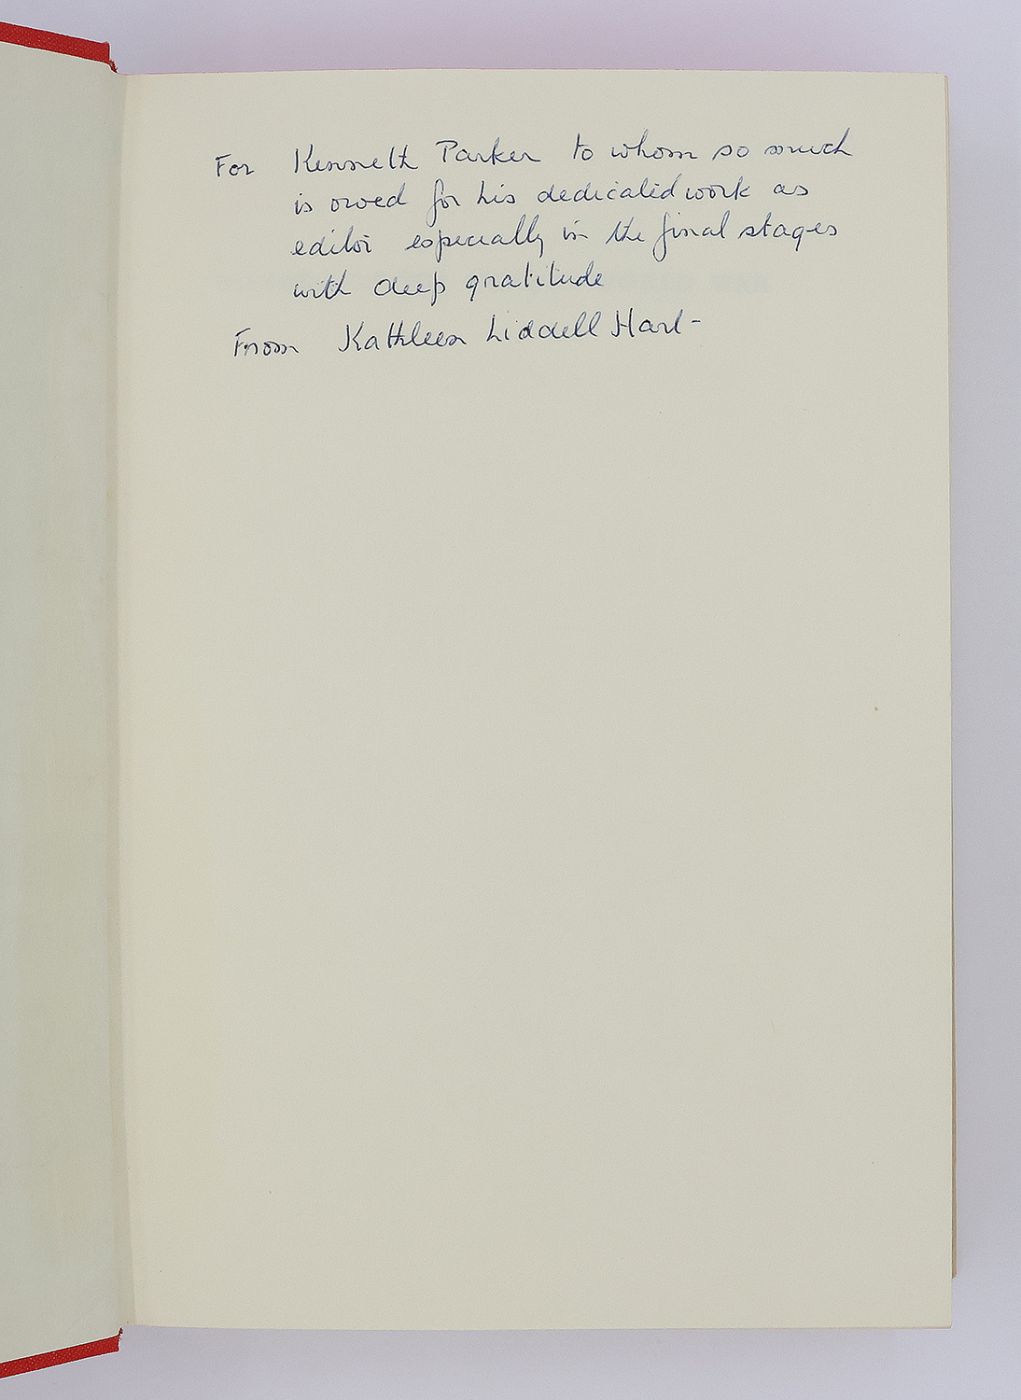 For Kenneth Parker to whom so much
is owed for his dedicated work as
editor especially in the final stages
with deep gratitude
From Kathleen Liddell Hart-